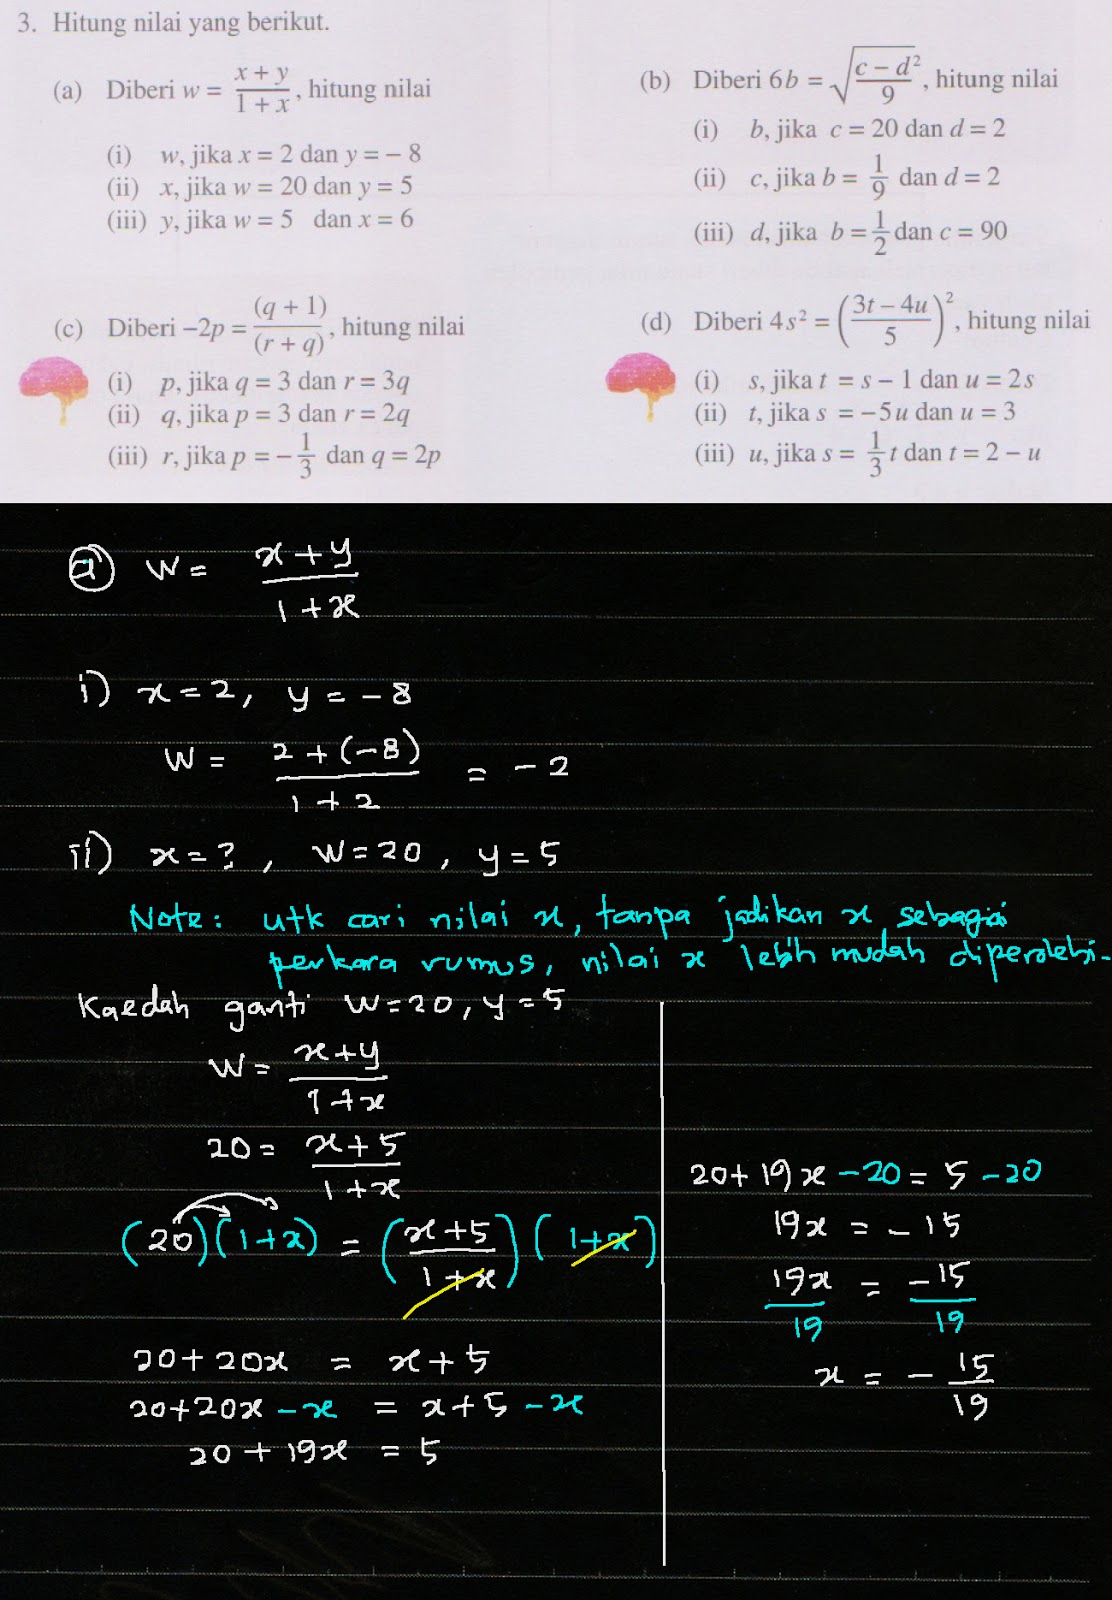 3. Hitung nilai yang berikut.
(a) Diberi w = (x + y)/(1 + x), hitung nilai
(i) w, jika x = 2 dan y = – 8
(ii) x, jika w = 20 dan y = 5
(iii) y, jika w = 5 dan x = 6
(b) Diberi 6b = √((c – d²)/9), hitung nilai
(i) b, jika c = 20 dan d = 2
(ii) c, jika b = 1/9 dan d = 2
(iii) d, jika b = 1/2 dan c = 90
(c) Diberi –2p = (q + 1)/(r + q), hitung nilai
(i) p, jika q = 3 dan r = 3q
(ii) q, jika p = 3 dan r = 2q
(iii) r, jika p = – 1/3 dan q = 2p
(d) Diberi 4s² = ((3t – 4u)/5)², hitung nilai
(i) s, jika t = s – 1 dan u = 2s
(ii) t, jika s = –5u dan u = 3
(iii) u, jika s = 1/3 t dan t = 2 – u
(a) w = (x + y)/(1 + x)
i) x = 2, y = – 8
w = (2 + (–8))/(1 + 2) = – 2
ii) x = ? , w = 20 , y = 5
Note: utk cari nilai x, tanpa jadikan x sebagai
perkara rumus, nilai x lebih mudah diperolehi.
Kaedah ganti w = 20, y = 5
w = (x + y)/(1 + x)
20 = (x + 5)/(1 + x)
(20)(1 + x) = ((x + 5)/(1 + x))(1 + x)
20 + 20x = x + 5
20 + 20x – x = x + 5 – x
20 + 19x = 5
20 + 19x – 20 = 5 – 20
19x = – 15
19x/19 = –15/19
x = – 15/19